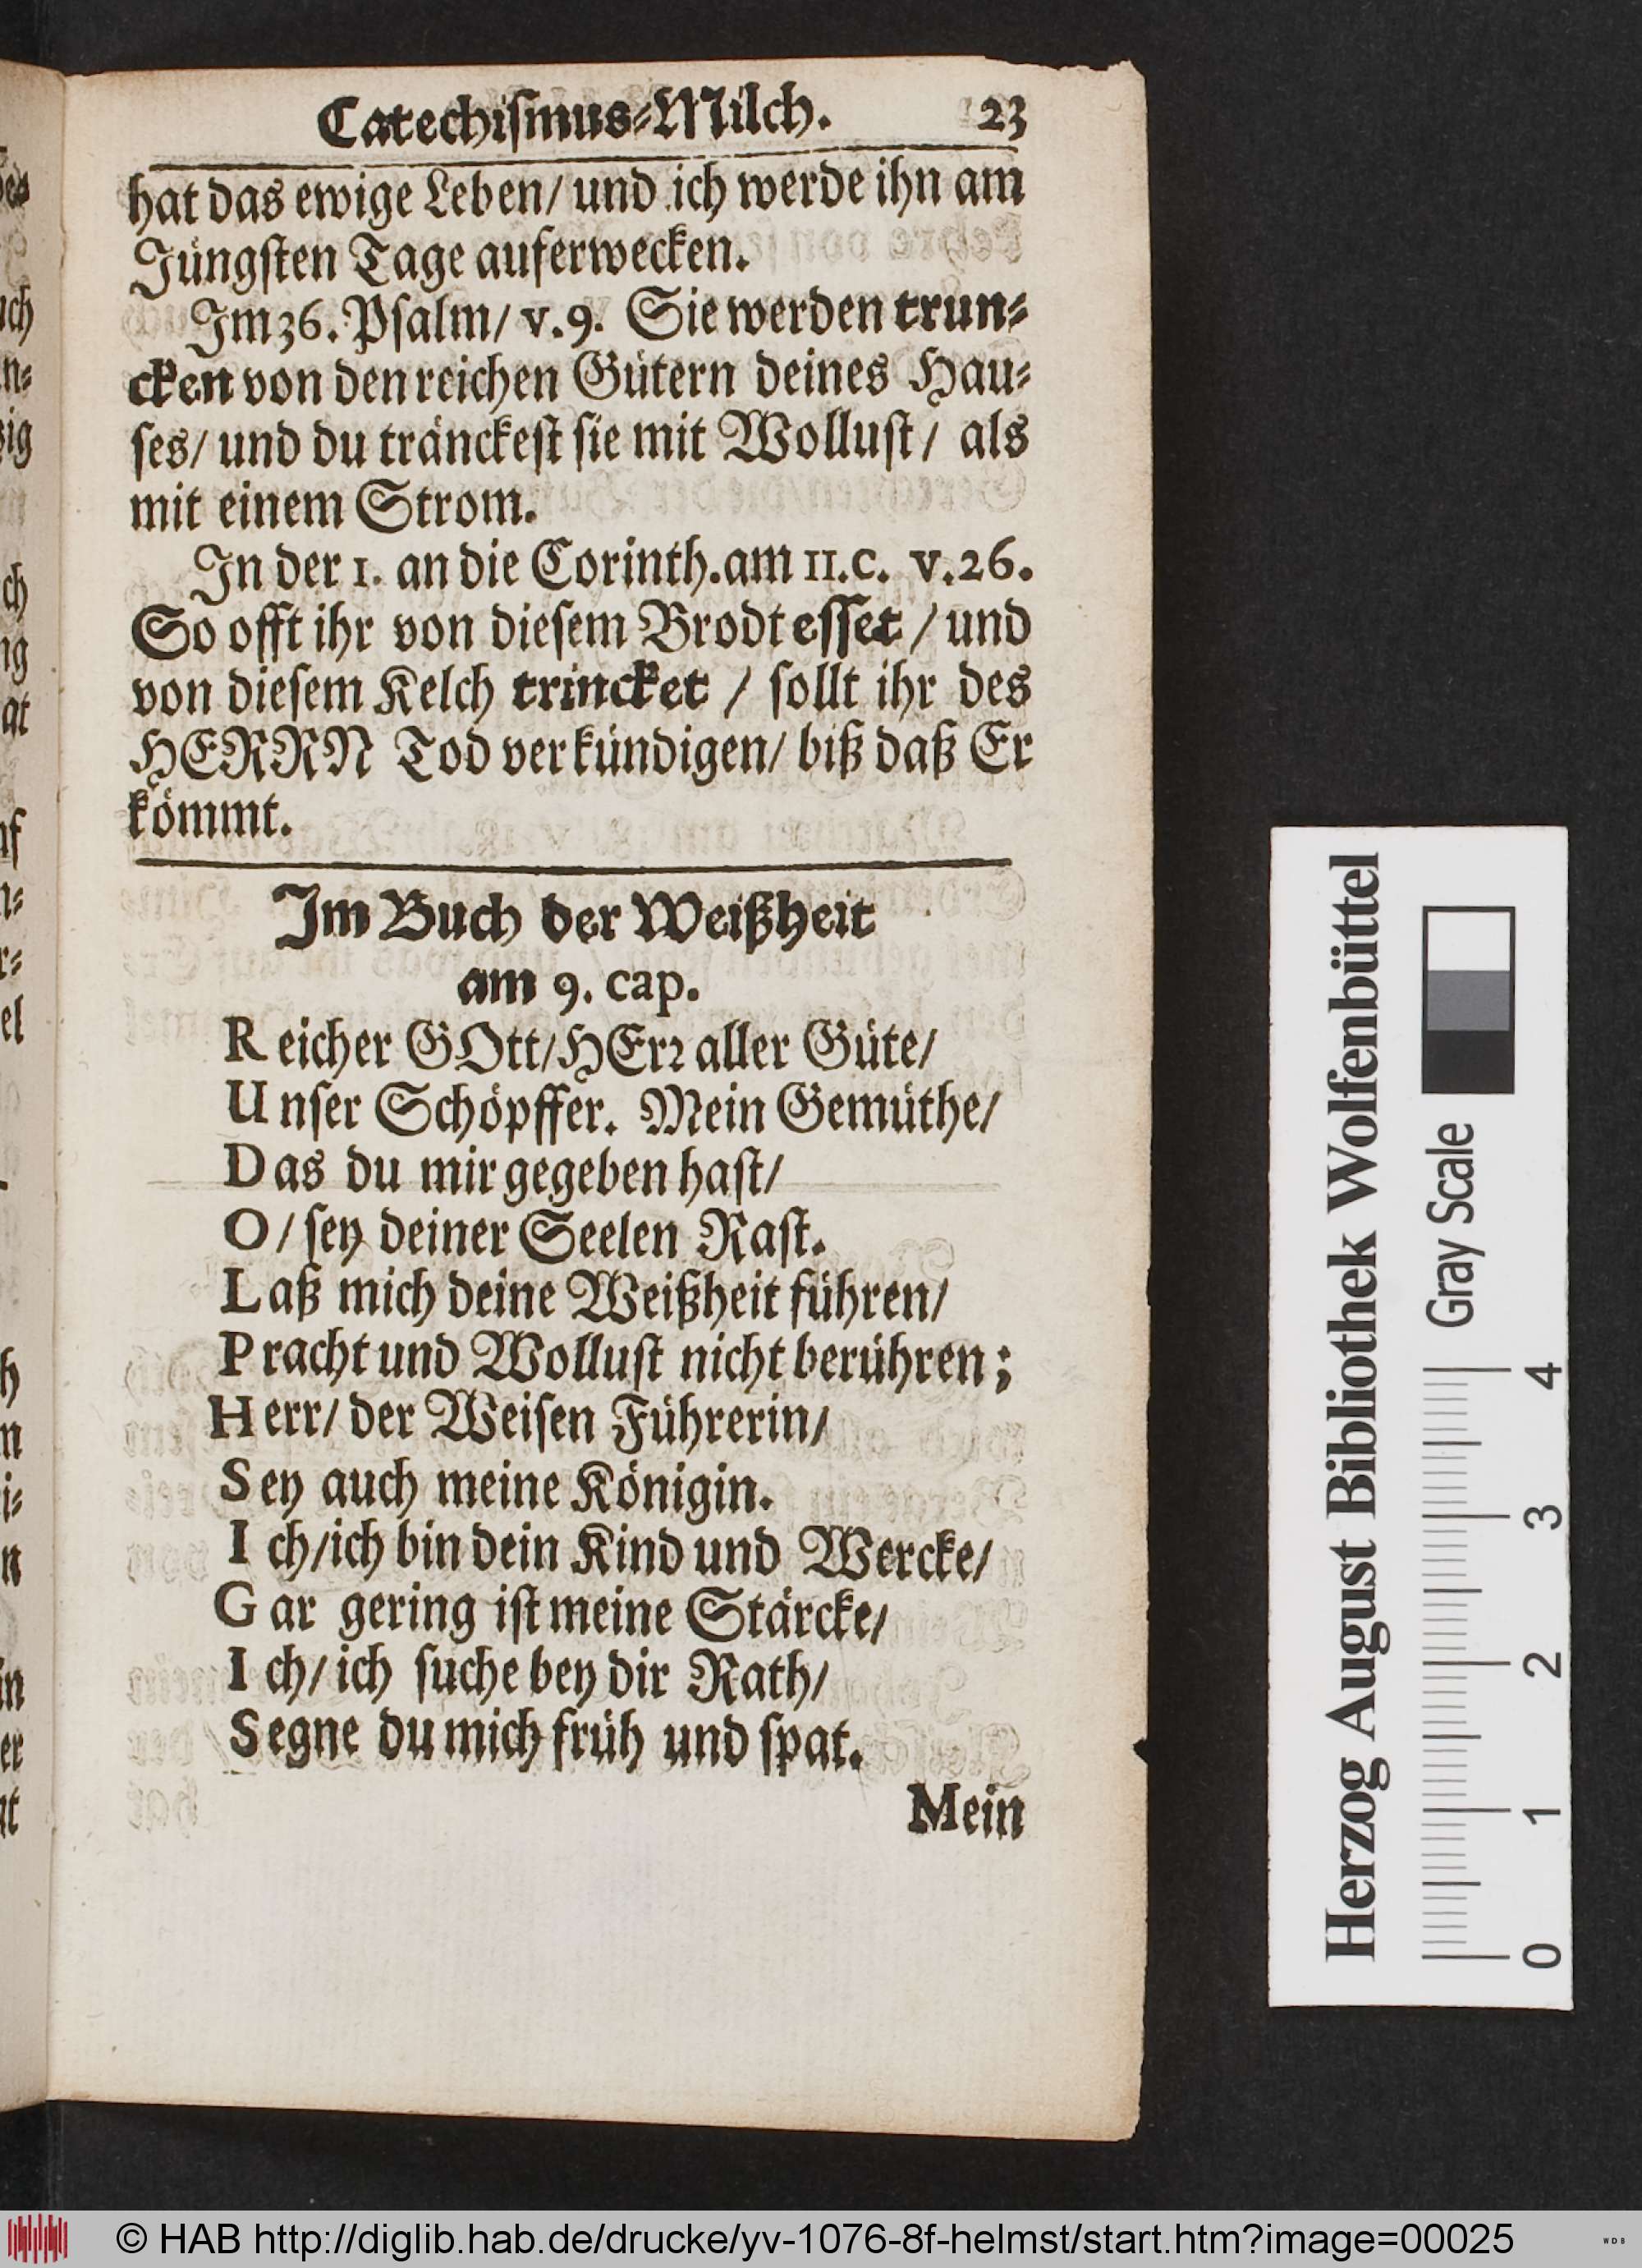 Catechiſmus⸗Milch. 23
hat das ewige Leben/ und ich werde ihn am
Jüngſten Tage auferwecken.
Im 36. Pſalm/ v. 9. Sie werden trun⸗
cken von den reichen Gütern deines Hau⸗
ſes/ und du tränckeſt ſie mit Wolluſt/ als
mit einem Strom.
In der 1. an die Corinth. am 11. c. v. 26.
So offt ihr von dieſem Brodt eſſet / und
von dieſem Kelch trincket / ſollt ihr des
HERRN Tod verkündigen/ biß daß Er
kömmt.
Im Buch der Weißheit
am 9. cap.
Reicher GOtt/ HErꝛ aller Güte/
Unſer Schöpffer. Mein Gemüthe/
Das du mir gegeben haſt/
O/ ſey deiner Seelen Raſt.
Laß mich deine Weißheit führen/
Pracht und Wolluſt nicht berühren;
Herr/ der Weiſen Führerin/
Sey auch meine Königin.
Ich/ ich bin dein Kind und Wercke/
Gar gering iſt meine Stärcke/
Ich/ ich ſuche bey dir Rath/
Segne du mich früh und ſpat.
Mein
Herzog August Bibliothek Wolfenbüttel
Gray Scale
0 1 2 3 4
© HAB http://diglib.hab.de/drucke/yv-1076-8f-helmst/start.htm?image=00025